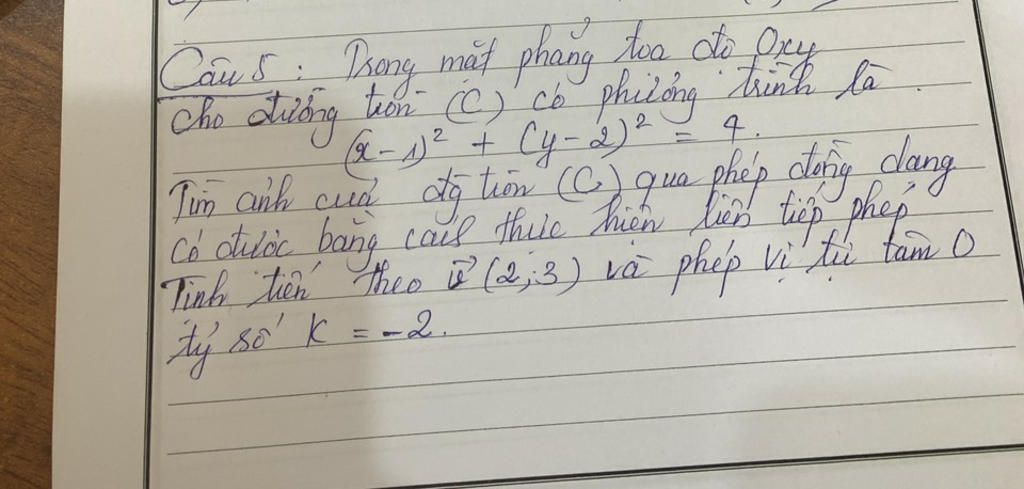 Câu 5 : Trong mặt phẳng tọa độ Oxy
cho đường tròn (C) có phương trình là
(x-1)² + (y-2)² = 4.
Tìm ảnh của đg tròn (C) qua phép đồng dạng
có được bằng cách thực hiện liên tiếp phép
Tịnh tiến theo v⃗ (2;3) và phép vị tự tâm O
tỷ số k = -2.